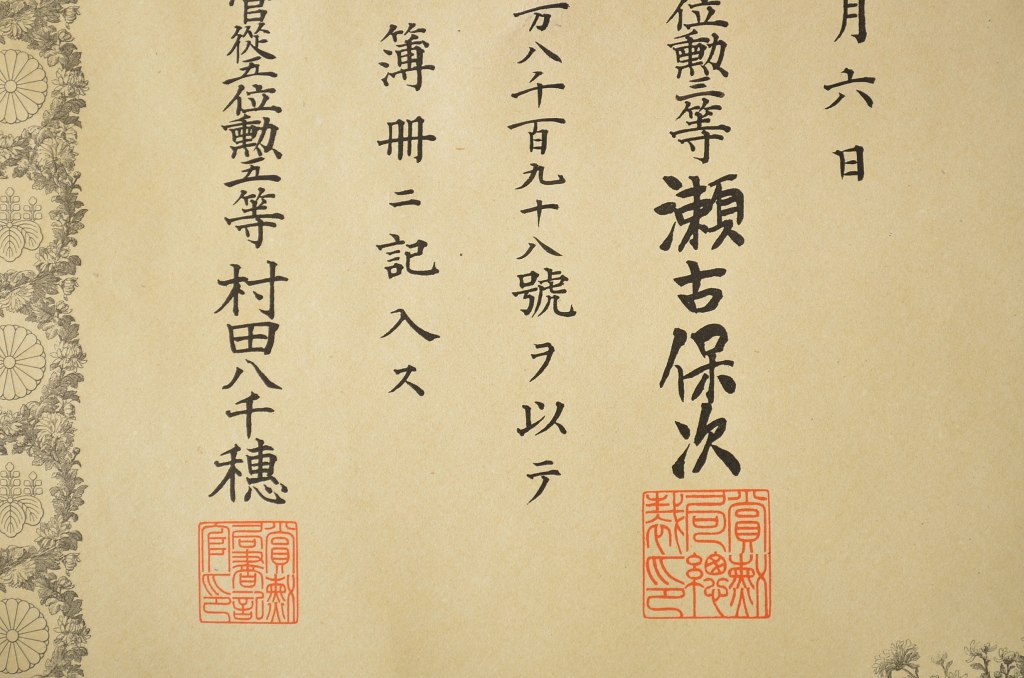 月六日
位勲三等瀬古保次
賞勲局總裁印
万八千百九十八號ヲ以テ
簿冊ニ記入ス
官從五位勲五等村田八千穗
賞勲局書記官印